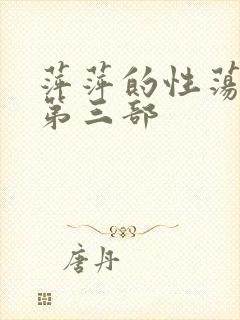 萍萍的性荡
第三部
唐丹